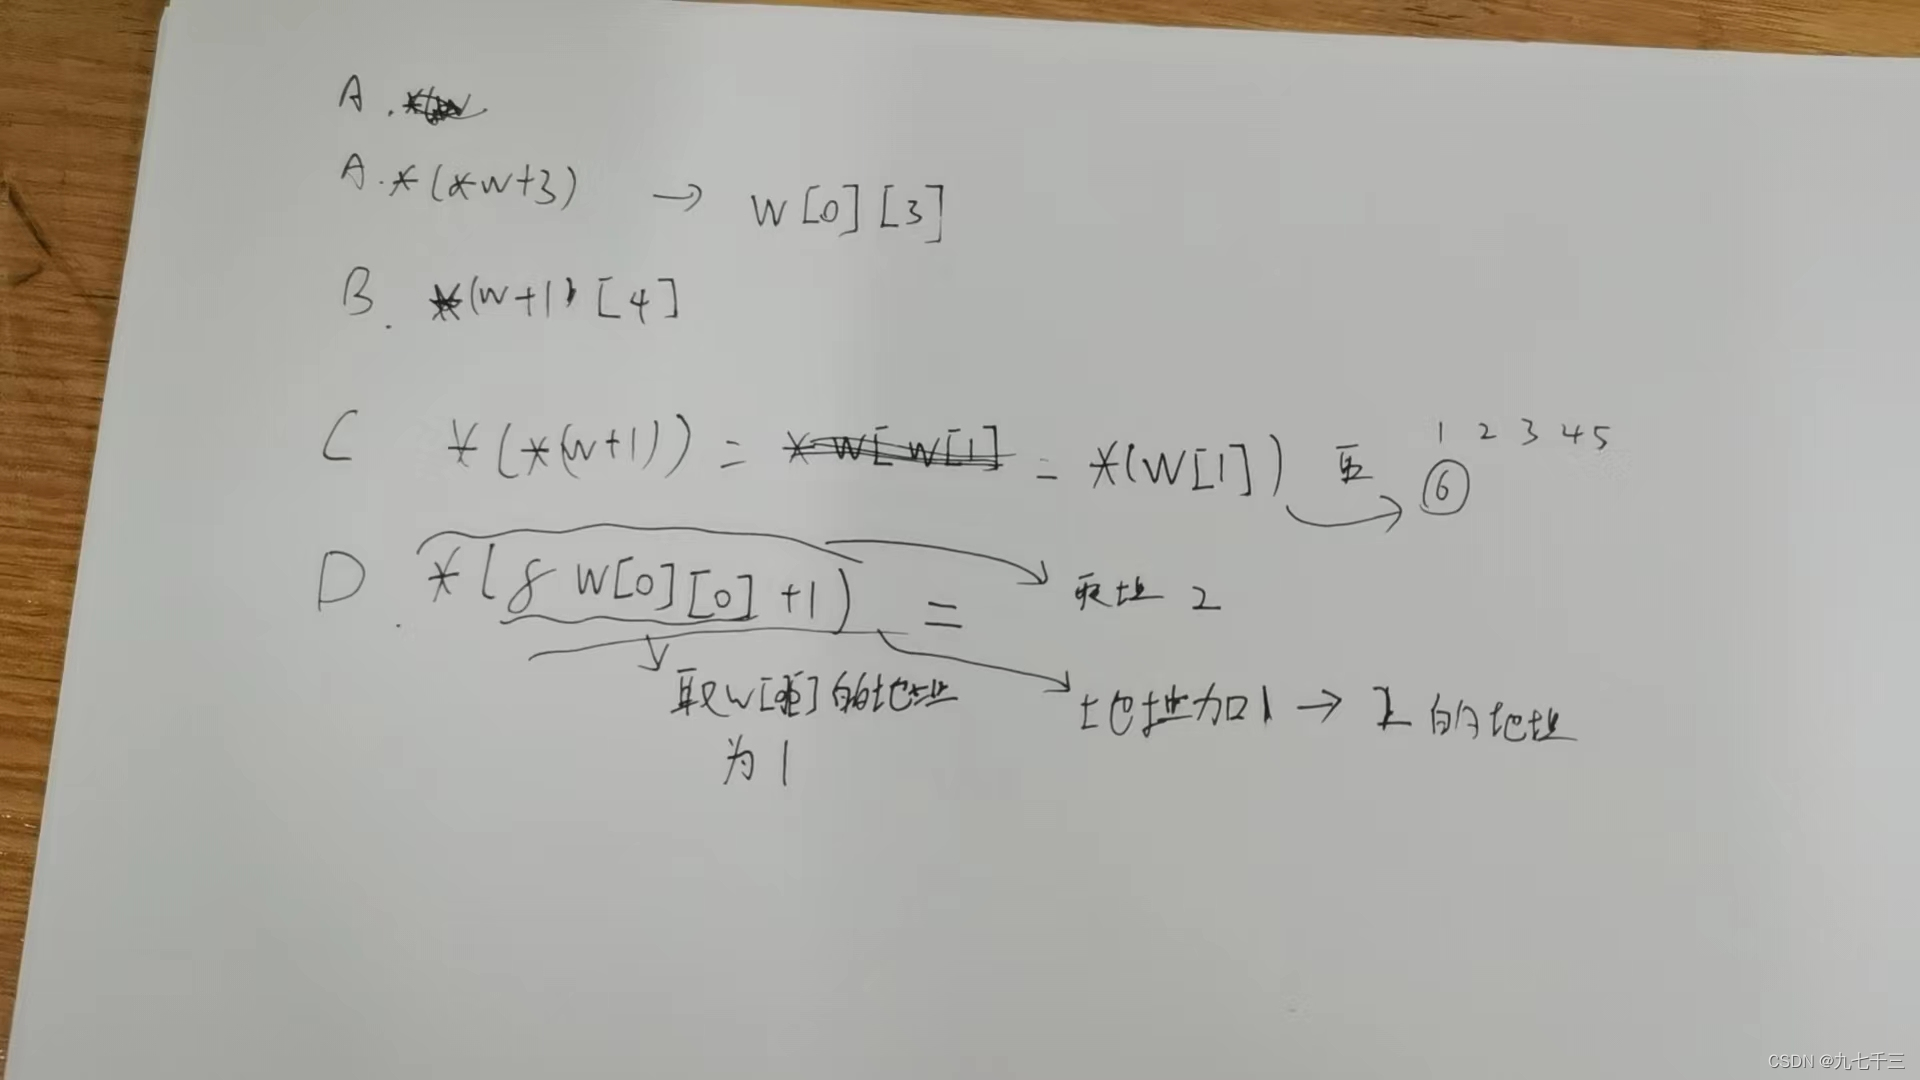 A.
A. *(*w+3) → W[0][3]
B. *(w+1)[4]
C *(*(w+1)) = = *(W[1]) 取 1 2 3 4 5
⑥
D. *(& W[0][0] +1) = 取址 2
取W[]的地址 地址加1 → 2的地址
为1
CSDN @九七千三